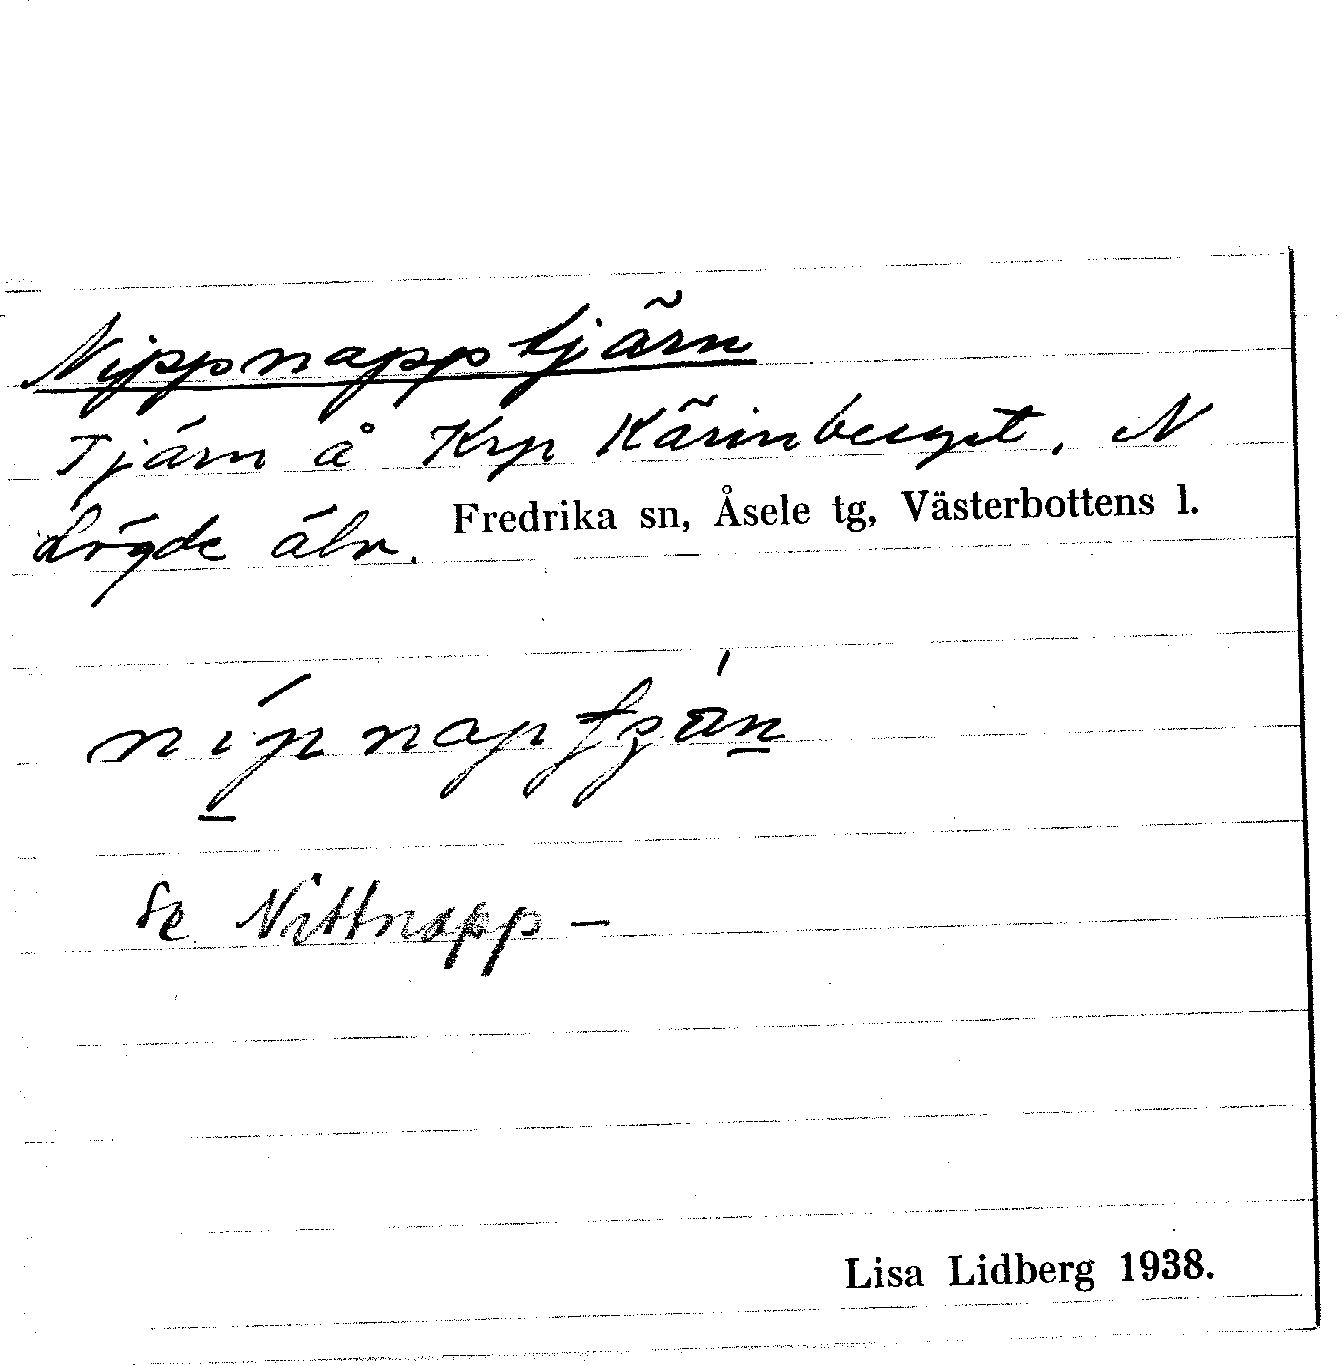 Nippnapptjärn
Tjärn å Krp Kärinberget, N
Lögde älv. Fredrika sn, Åsele tg, Västerbottens l.
Se Nittnapp –
Lisa Lidberg 1938.